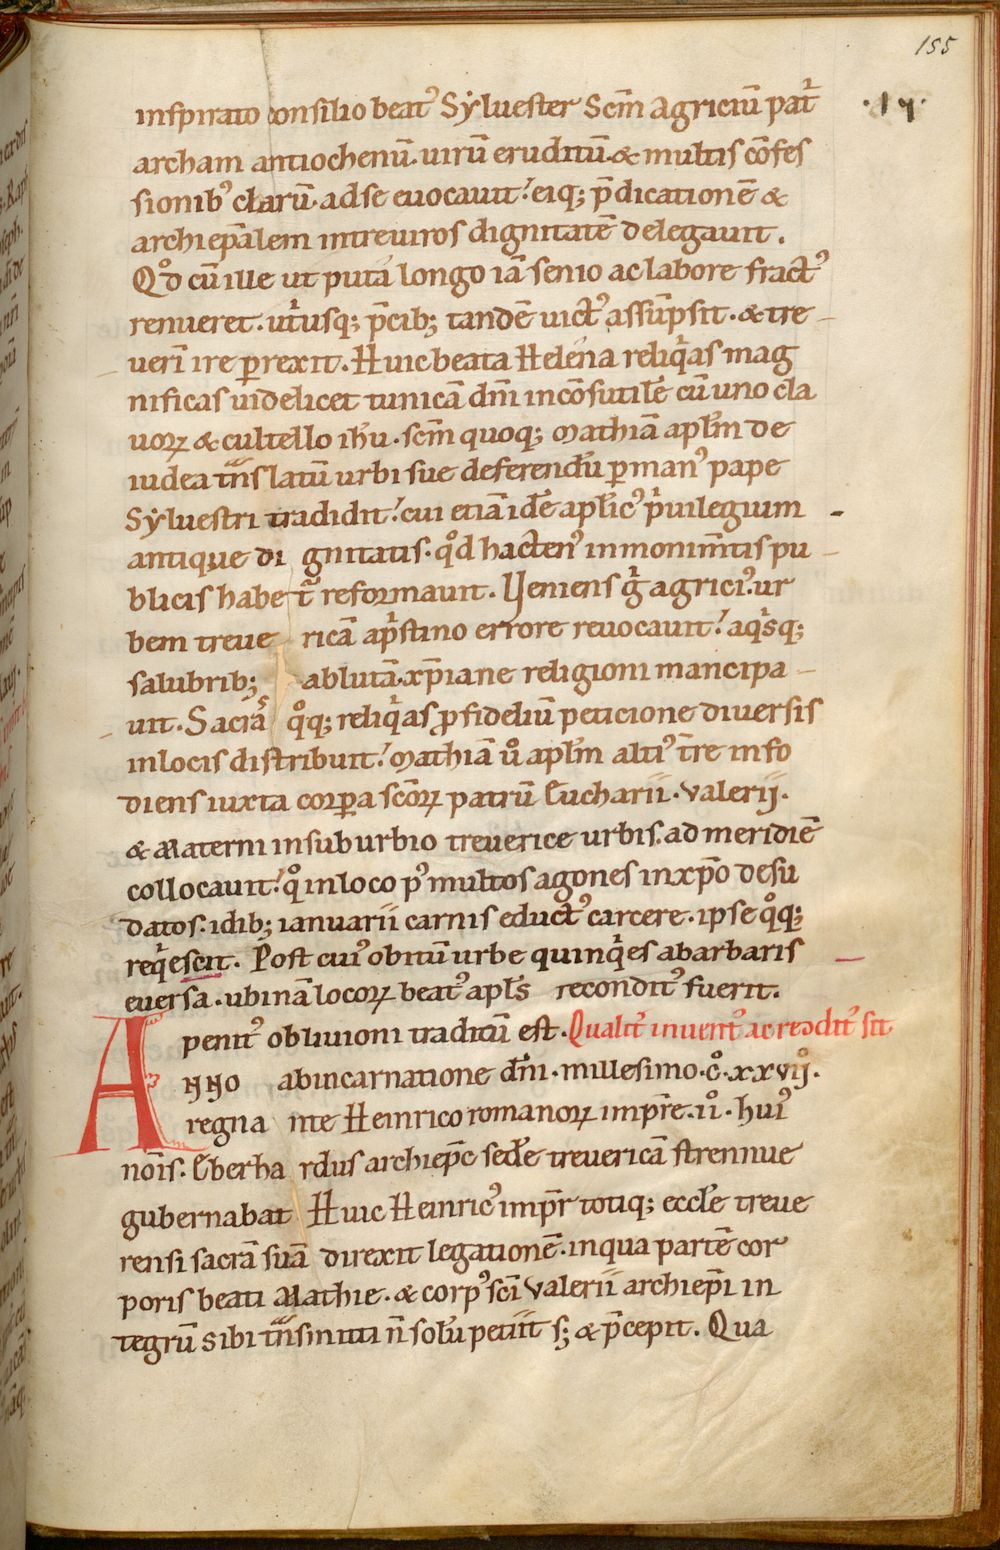 155
·17·
inspirato consilio beatꝰ Sẏluester Scm̄ agriciū pat͛
archam antiochenū. uirū eruditū. & multis cōfes
sionibꝰ clarū. ad se euocauit! eiq; p̄dicationē &
archiep̄alem intreuiros dignitatē delegauit.
Qd̊ cū ille ut puta longo iā senio ac labore fractꝰ
renueret. ut͛usq; p̄cib; tandē uictꝰ assūpsit. & tre
ueri ire ꝑrexit. Huic beata Helena reliq͛as mag
nificas uidelicet tunicā dn̄i incōsutilē cū uno cla
uoꝝ & cultello ih̄u. scm̄ quoq; Mathiā apl̄m de
iudea tn̄slatū urbi sue deferendū ꝑ manꝰ pape
Sẏluestri tradidit! cui etiā idē apl̄icꝰ p͛uilegium
antique di gnitatis. qd̊ hactenꝰ in monim̄tis pu
blicis habet͛ reformauit. Veniens g͛ agriciꝰ. ur
bem treue ricā ap͛stino errore reuocauit! aq͛sq;
salubrib; ablutā. xp̄iane religioni mancipa
uit. Sacrā q̊q; reliq͛as ꝓ fidelium peticione diuersis
in locis distribuit! Mathiā ů apl̄m altiꝰ t͛re info
diens iuxta corꝑa scōꝝ patrū Eucharii. Valerij.
& Materni in suburbio treuerice urbis. ad meridiē
collocauit! q̊ in loco pꝰ multos agones in xp̄o desu
datos. idib; ianuarii carnis eductꝰ carcere. ipse q̊q;
req͛escit. Post cuiꝰ obitū urbe quinq͛es abarbaris
euersa. ubinā locoꝝ beatꝰ apl̄s reconditꝰ fuerit.
penitꝰ obliuioni traditū est. Qualit͛ inuentꝰ ac redditꝰ sit
ANNO ab incarnatione dn̄i. millesimo. c̊. xxvij̊.
regna nte Heinrico romanoꝝ imp̄re. ıı̊. huiꝰ
nōis. Eberha rdus archiep̄c sedē treuericā strennue
gubernabat Huic Heinricꝰ imp̄r totiq; eccl̄e treue
rensi sacrā suā direxit legationē. in qua partē cor
poris beati Mathie. & corpꝰ sc̄i Valerii archiep̄i in
tegrū sibi tn̄smitti n̄ solū petiit s; & p̄cepit. Qua